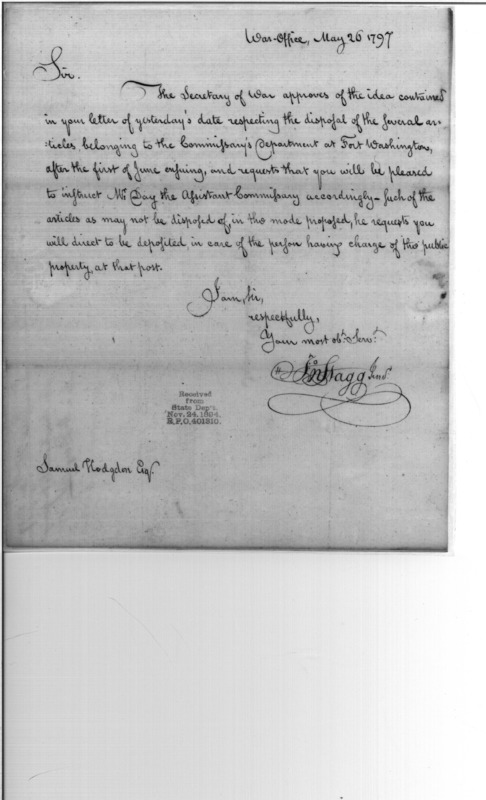 War-Office, May 26 1797
Sir.
The Secretary of War approves of the idea contained
in your letter of yesterday's date respecting the disposal of the several ar-
-ticles, belonging to the Commissary's Department at Fort Washington,
after the first of June ensuing, and requests that you will be pleased
to instruct Mr. Day the Assistant Commissary accordingly - Such of the
articles as may not be disposed of, in the mode proposed, he requests you
will direct to be deposited, in care of the person having charge of the public
property, at that post.
I am, Sir,
respectfully,
Your most obt. Servt.
Jno Stagg Junr.
Received
from
State Dep't.
Nov. 24, 1894.
R.P.O. 401310.
Samuel Hodgdon Esqr.